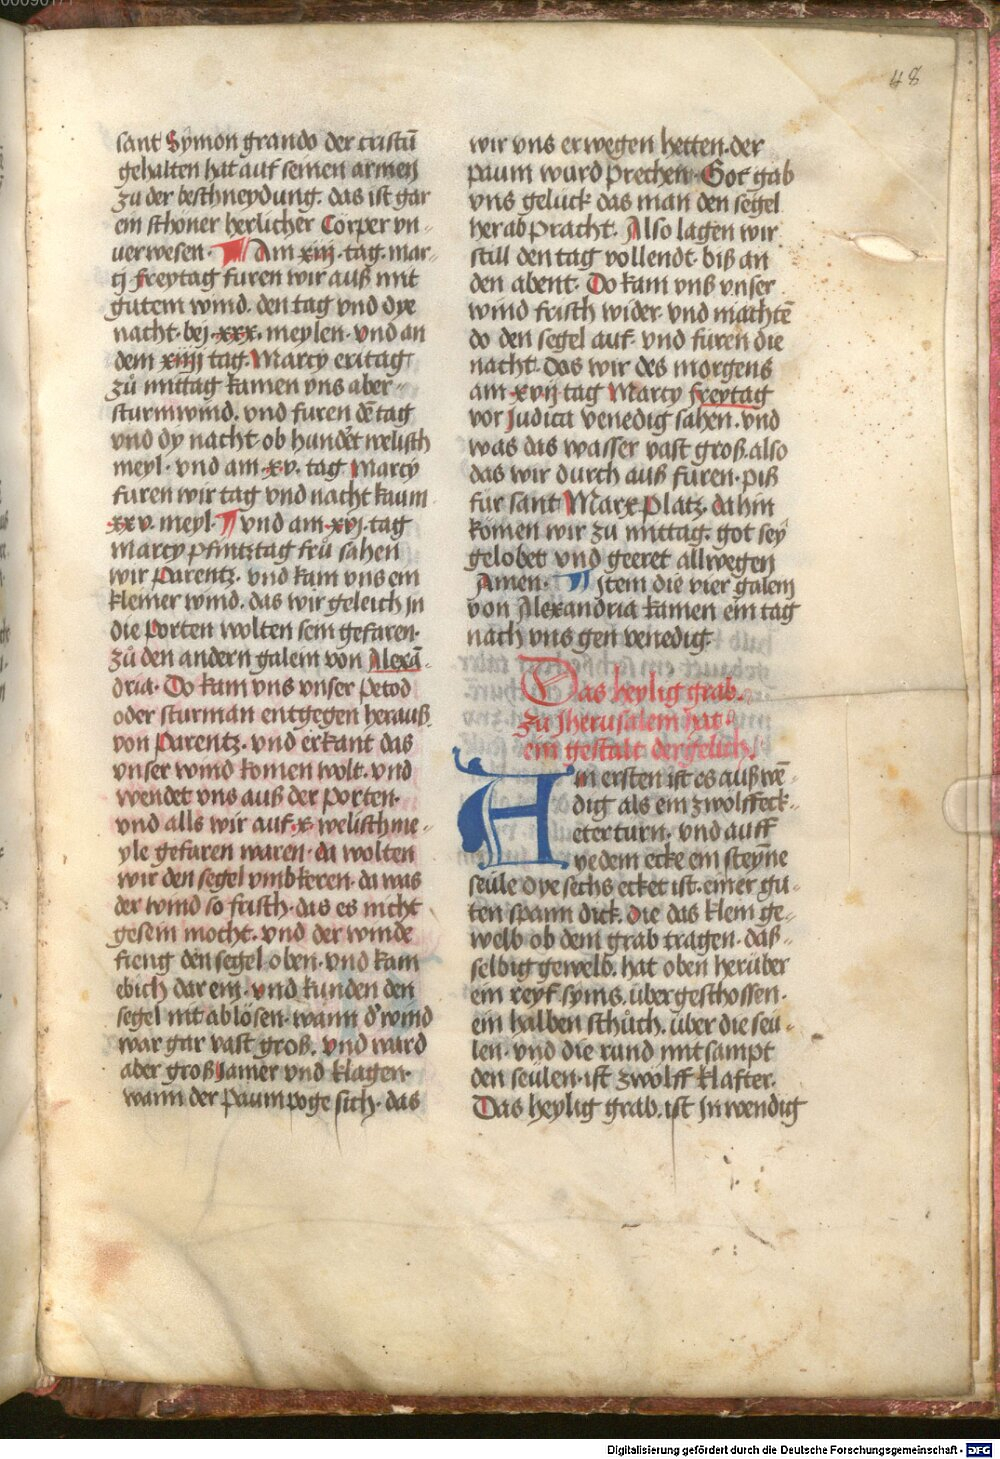 48
sant Symon grando der cristū
gehalten hat auf seinen armen
zu der beschneydung. das ist gar
ein schöner herlicher Cörper vn-
uerwesen. ¶ Am xiij. tag. mar-
cj freytag furen wir auß mit
gutem wind. den tag vnd dye
nacht. bej. xxx. meylen. vnd an
dem xiiij tag. Marcy eritag
zů mittag kamen vns aber-
sturmwind. vnd furen dē tag
vnd dy nacht. ob hundert welisch
meyl. vnd am. xv. tag Marcy
furen wir tag vnd nacht kaum
xxv. meyl. ¶ vnd am. xvj. tag
marcy pfintztag frů sahen
wir Parentz. vnd kam vns ein
kleiner wind. das wir geleich jn
die porten wolten sein gefaren.
zů den andern galein von Alexā-
dria. Do kam vns vnser petod
oder sturman entgegen herauß
von Parentz. vnd erkant das
vnser wind komen wolt. vnd
wendet vns auß der porten.
vnd alls wir auf. x. welisch me-
yle gefaren waren. da wolten
wir den segel vmbkeren. da was
der wind so frisch. das es nicht
gesein mocht. vnd der winde
fieng den segel oben. vnd kam
ebich darein. vnd kunden den
segel nit ablösen. wann d' wind
war gar vast groß. vnd ward
aber groß Jamer vnd klagen.
wann der paum poge sich. das
wir vns erwegen hetten. der
paum wurd prechen. Got gab
vns gelück das man den segel
herab pracht. Also lagen wir
still den tag vollendt. biß an
den abent. Do kam vnß vnser
wind frisch wider. vnd machtē
do den segel auf. vnd furen die
nacht. das wir des morgens
am. xvij tag Marcy freytag
vor Judica venedig sahen. vnd
was das wasser vast groß. also
das wir durch auß furen. piß
für sant Marx Platz. dahin
komen wir zu mittag. got sey
gelobet vnd geeret allwegen
Amen. ¶ Item die vier galein
von Alexandria kamen ein tag
nach vns gen venedig.
Das heylig grab.
zu Jherusalem hat
ein gestalt dergelich.
Am ersten ist es außwē-
dig als ein zwolffeck-
eter turn. vnd auff
yedem ecke ein steyne
seule dye sechs ecket ist. einer gu-
ten spann dick. die das klein ge-
welb ob dem grab tragen. daß-
selbig gewelb. hat oben herüber
ein reyf syms. übergeschossen.
ein halben schůch. über die seu-
len. vnd die rund mitsampt
den seulen. ist zwölff klafter.
Das heylig grab. ist Inwendig
Digitalisierung gefördert durch die Deutsche Forschungsgemeinschaft - DFG